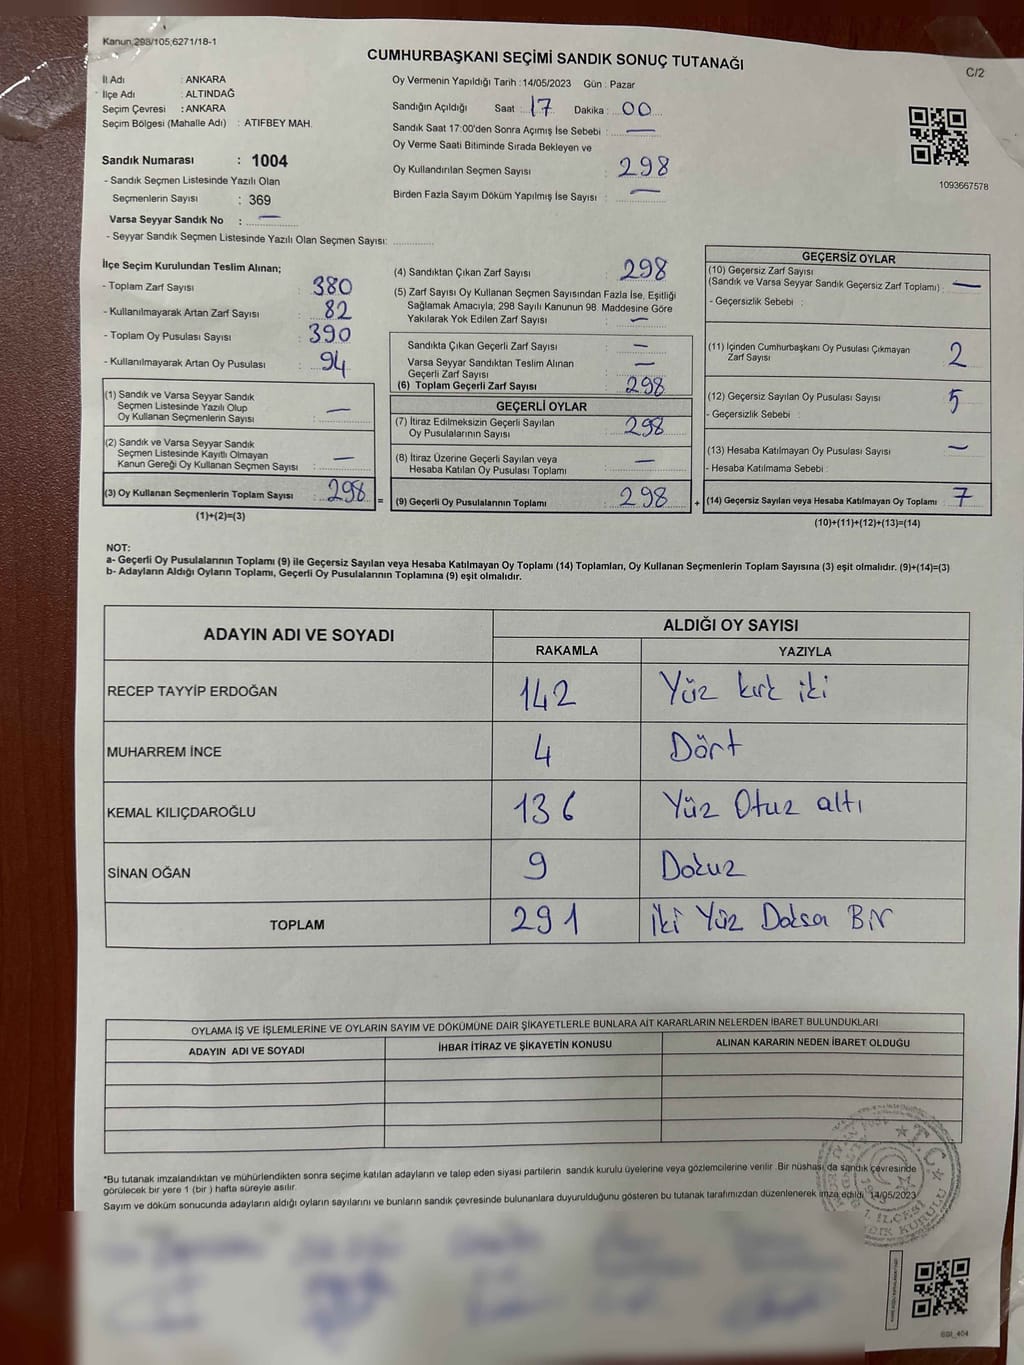 Kanun 298/105,6271/18-1
CUMHURBAŞKANI SEÇİMİ SANDIK SONUÇ TUTANAĞI
C/2
İl Adı : ANKARA
İlçe Adı : ALTINDAĞ
Seçim Çevresi : ANKARA
Seçim Bölgesi (Mahalle Adı) : ATIFBEY MAH.
Sandık Numarası : 1004
- Sandık Seçmen Listesinde Yazılı Olan
Seçmenlerin Sayısı : 369
Varsa Seyyar Sandık No : —
- Seyyar Sandık Seçmen Listesinde Yazılı Olan Seçmen Sayısı: ..............
Oy Vermenin Yapıldığı Tarih : 14/05/2023 Gün : Pazar
Sandığın Açıldığı Saat : 17 Dakika : 00
Sandık Saat 17:00'den Sonra Açımış İse Sebebi : —
Oy Verme Saati Bitiminde Sırada Bekleyen ve
Oy Kullandırılan Seçmen Sayısı : 298
Birden Fazla Sayım Döküm Yapılmış İse Sayısı : —
1093667578
İlçe Seçim Kurulundan Teslim Alınan;
- Toplam Zarf Sayısı : 380
- Kullanılmayarak Artan Zarf Sayısı : 82
- Toplam Oy Pusulası Sayısı : 390
- Kullanılmayarak Artan Oy Pusulası : 94
(1) Sandık ve Varsa Seyyar Sandık
Seçmen Listesinde Yazılı Olup
Oy Kullanan Seçmenlerin Sayısı : —
(2) Sandık ve Varsa Seyyar Sandık
Seçmen Listesinde Kayıtlı Olmayan
Kanun Gereği Oy Kullanan Seçmen Sayısı : —
(3) Oy Kullanan Seçmenlerin Toplam Sayısı : 298 =
(1)+(2)=(3)
(4) Sandıktan Çıkan Zarf Sayısı : 298
(5) Zarf Sayısı Oy Kullanan Seçmen Sayısından Fazla İse, Eşitliği
Sağlamak Amacıyla, 298 Sayılı Kanunun 98. Maddesine Göre
Yakılarak Yok Edilen Zarf Sayısı : —
Sandıkta Çıkan Geçerli Zarf Sayısı : —
Varsa Seyyar Sandıktan Teslim Alınan
Geçerli Zarf Sayısı : —
(6) Toplam Geçerli Zarf Sayısı : 298
GEÇERLİ OYLAR
(7) İtiraz Edilmeksizin Geçerli Sayılan
Oy Pusulalarının Sayısı : 298
(8) İtiraz Üzerine Geçerli Sayılan veya
Hesaba Katılan Oy Pusulası Toplamı : —
(9) Geçerli Oy Pusulalarının Toplamı : 298 +
GEÇERSİZ OYLAR
(10) Geçersiz Zarf Sayısı
(Sandık ve Varsa Seyyar Sandık Geçersiz Zarf Toplamı) : —
- Geçersizlik Sebebi :
(11) İçinden Cumhurbaşkanı Oy Pusulası Çıkmayan
Zarf Sayısı 2
(12) Geçersiz Sayılan Oy Pusulası Sayısı : 5
- Geçersizlik Sebebi :
(13) Hesaba Katılmayan Oy Pusulası Sayısı : —
- Hesaba Katılmama Sebebi :
(14) Geçersiz Sayılan veya Hesaba Katılmayan Oy Toplamı : 7
(10)+(11)+(12)+(13)=(14)
NOT:
a- Geçerli Oy Pusulalarının Toplamı (9) ile Geçersiz Sayılan veya Hesaba Katılmayan Oy Toplamı (14) Toplamları, Oy Kullanan Seçmenlerin Toplam Sayısına (3) eşit olmalıdır. (9)+(14)=(3)
b- Adayların Aldığı Oyların Toplamı, Geçerli Oy Pusulalarının Toplamına (9) eşit olmalıdır.
ADAYIN ADI VE SOYADI ALDIĞI OY SAYISI
RAKAMLA YAZIYLA
RECEP TAYYİP ERDOĞAN 142 Yüz kırk iki
MUHARREM İNCE 4 Dört
KEMAL KILIÇDAROĞLU 136 Yüz Otuz altı
SİNAN OĞAN 9 Dokuz
TOPLAM 291 İki Yüz Doksan Bir
OYLAMA İŞ VE İŞLEMLERİNE VE OYLARIN SAYIM VE DÖKÜMÜNE DAİR ŞİKAYETLERLE BUNLARA AİT KARARLARIN NELERDEN İBARET BULUNDUKLARI
ADAYIN ADI VE SOYADI İHBAR İTİRAZ VE ŞİKAYETİN KONUSU ALINAN KARARIN NEDEN İBARET OLDUĞU
*Bu tutanak imzalandıktan ve mühürlendikten sonra seçime katılan adayların ve talep eden siyasi partilerin sandık kurulu üyelerine veya gözlemcilerine verilir. Bir nüshası da sandık çevresinde
görülecek bir yere 1 (bir) hafta süreyle asılır.
Sayım ve döküm sonucunda adayların aldığı oyların sayılarını ve bunların sandık çevresinde bulunanlara duyurulduğunu gösteren bu tutanak tarafımızdan düzenlenerek imza edildi. 14/05/2023
T.C.